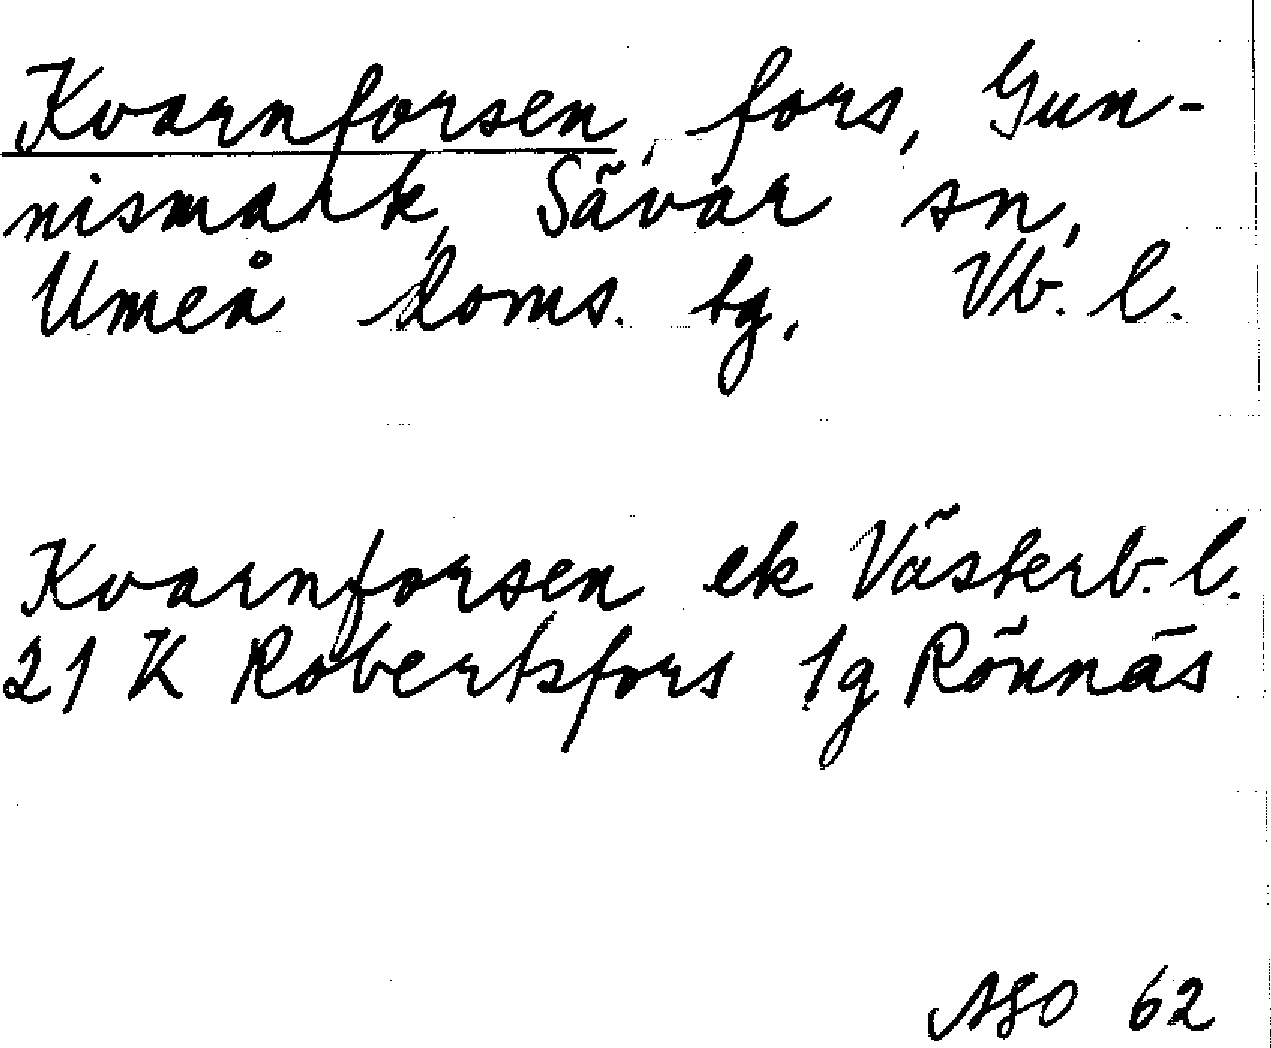 Kvarnforsen, fors, Gun-
nismark, Sävar sn,
Umeå doms. tg, Vb. l.
Kvarnforsen ek Västerb. l.
21 K Robertsfors 1g Rönnäs
ASO 62